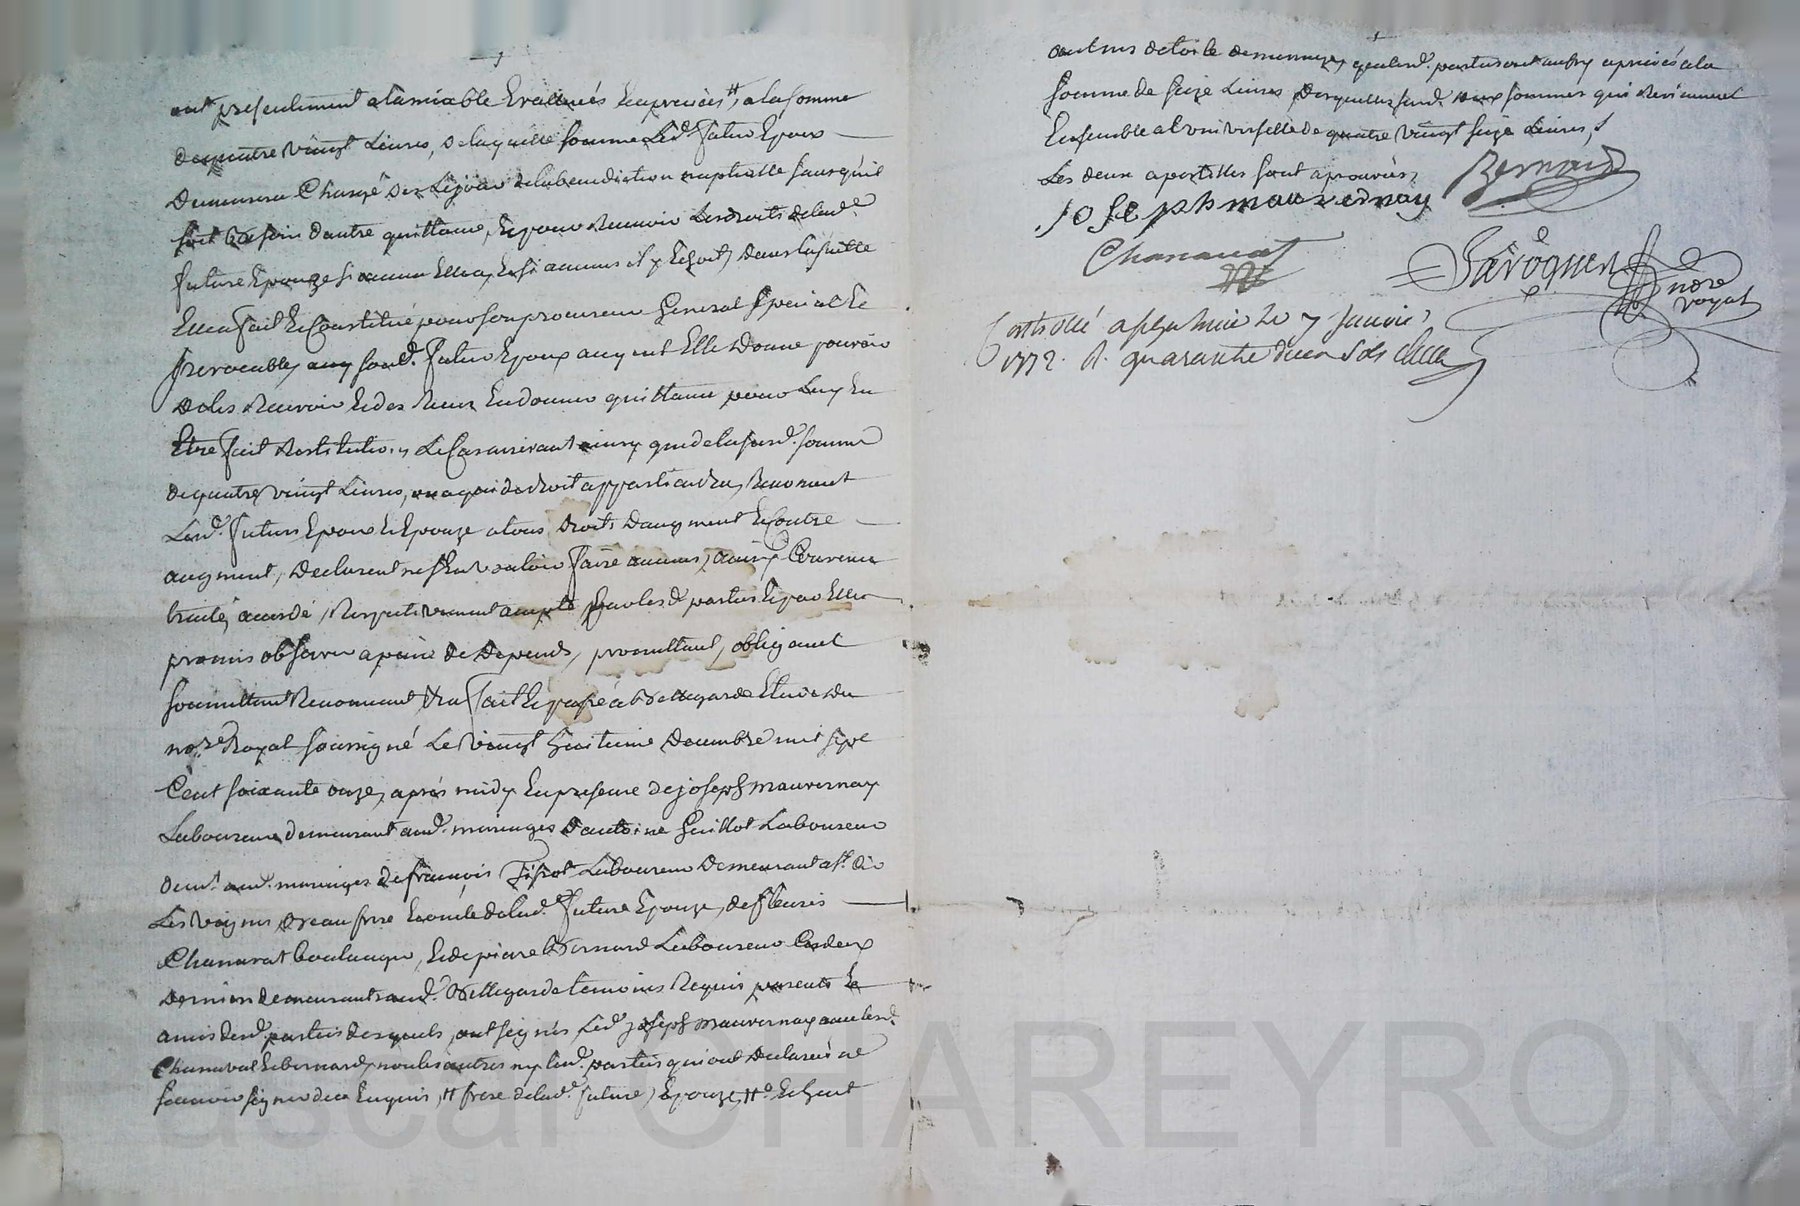 ont presentement a lamiable Evallués Eapreciés #, a la somme
de quatre vingt Livres, de laquelle somme Led. futur Epoux
demeurera Chargé des Le jour de la benediction nuptialle sans quil
soit besoin dautre quittance, Et pour Recevoir Les droits de lad.e
future Epouze si aucuns Elle a, Et si aucuns il y Echoit, dans la suitte
Elle a fait Et Constitué pour son procureur General special Et
Irrevocable, led. futur Epoux auquel Elle Donne pouvoir
de les Recevoir Et des Receus En donner quittance pour Luy En
Etre fait Restitution, Le Cas arrivant ainsy que de la susd. somme
de quatre vingt Livres, a qui de droit appartiendra, Renoncent
Lesd. futurs Epoux Et Epouze a tous droits daugment Et Contre
augment, Declarent nEn vouloir faire aucuns, ainsy Convenu
traité, acordé, Respectivement accepté par les d. parties Et par Elles
promis observer a peine de Depends, promettant, obligeant
soumettant Renonceant, &ra fait Et passé a Bellegarde Etude du
no.re Royal soussigné Le vingt huitieme Decembre mil sept
Cent soixante onze, aprés midy En presence de joseph mauvernay
Laboureur demeurant aud. maringes d'antoine Guillot Laboureur
dem.t aud. maringes de francois Tisot Laboureur Demeurant a s.t
Les voisins, Beaufrere Et oncle de lad.e future Epouze, de fleuris
Chanavat boulanger, Et de pierre Bernard Laboureur Ces deux
Derniers demeurants aud. Bellegarde temoins Requis parents Et
amis desd. parties desquels, ont signés Led. joseph mauvernay avec lesd.
Chanavat Et bernard, non les autres ny lesd. parties qui ont Declarés ne
scavoir signer de ce Enquis, # frere de lad.e future Epouze, #o Et huit
aulnes de toile de mennage, que lesd. parties ont ausy apreciés a la
somme de seize Livres, Lesquelles susd. deux sommes qui Reviennent
Ensemble a L'universelle de quatre vingt seize Livres,
Les deux apostilles sont aprouvées,
Bernard
joseph mauvernay
Chanavat
nore
royal
Controllé a le 7 Janvier
1772. R. quarante deux sols
ascal CHAREYRON